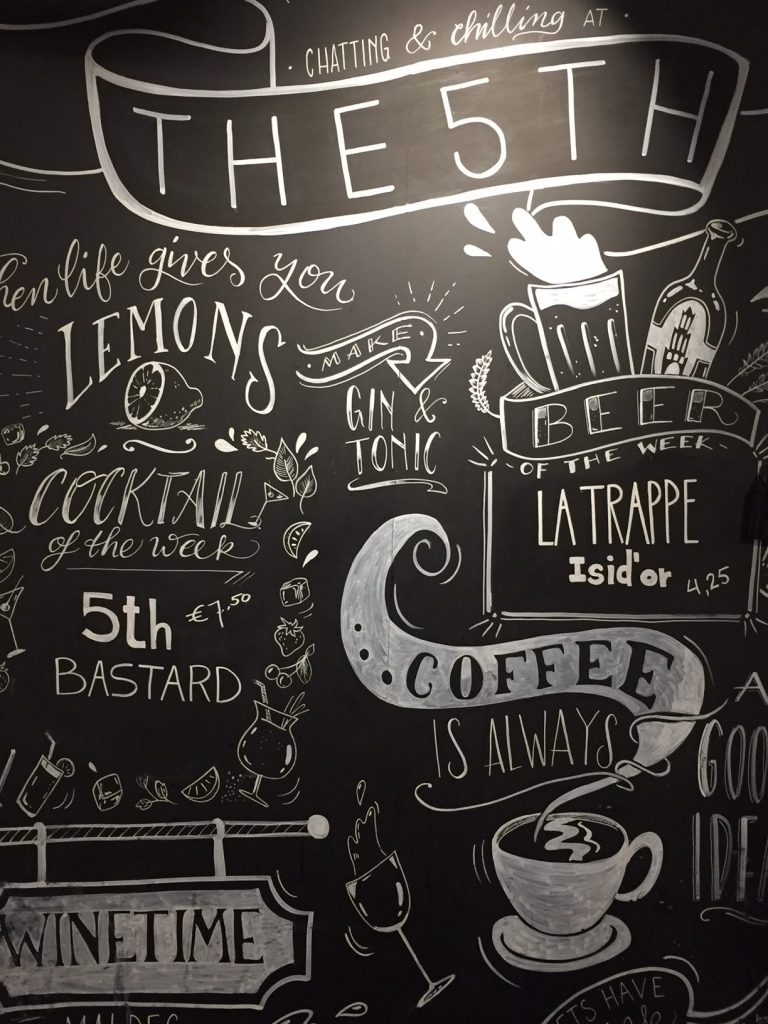 CHATTING & chilling AT
THE 5TH
hen life gives you
LEMONS
MAKE
GIN &
TONIC
BEER
OF THE WEEK
LA TRAPPE
Isid'or 4,25
COCKTAIL
of the week
5th €7,50
BASTARD
COFFEE
IS ALWAYS
A
GOO
IDEA
WINETIME
MALBEC
LETS HAVE